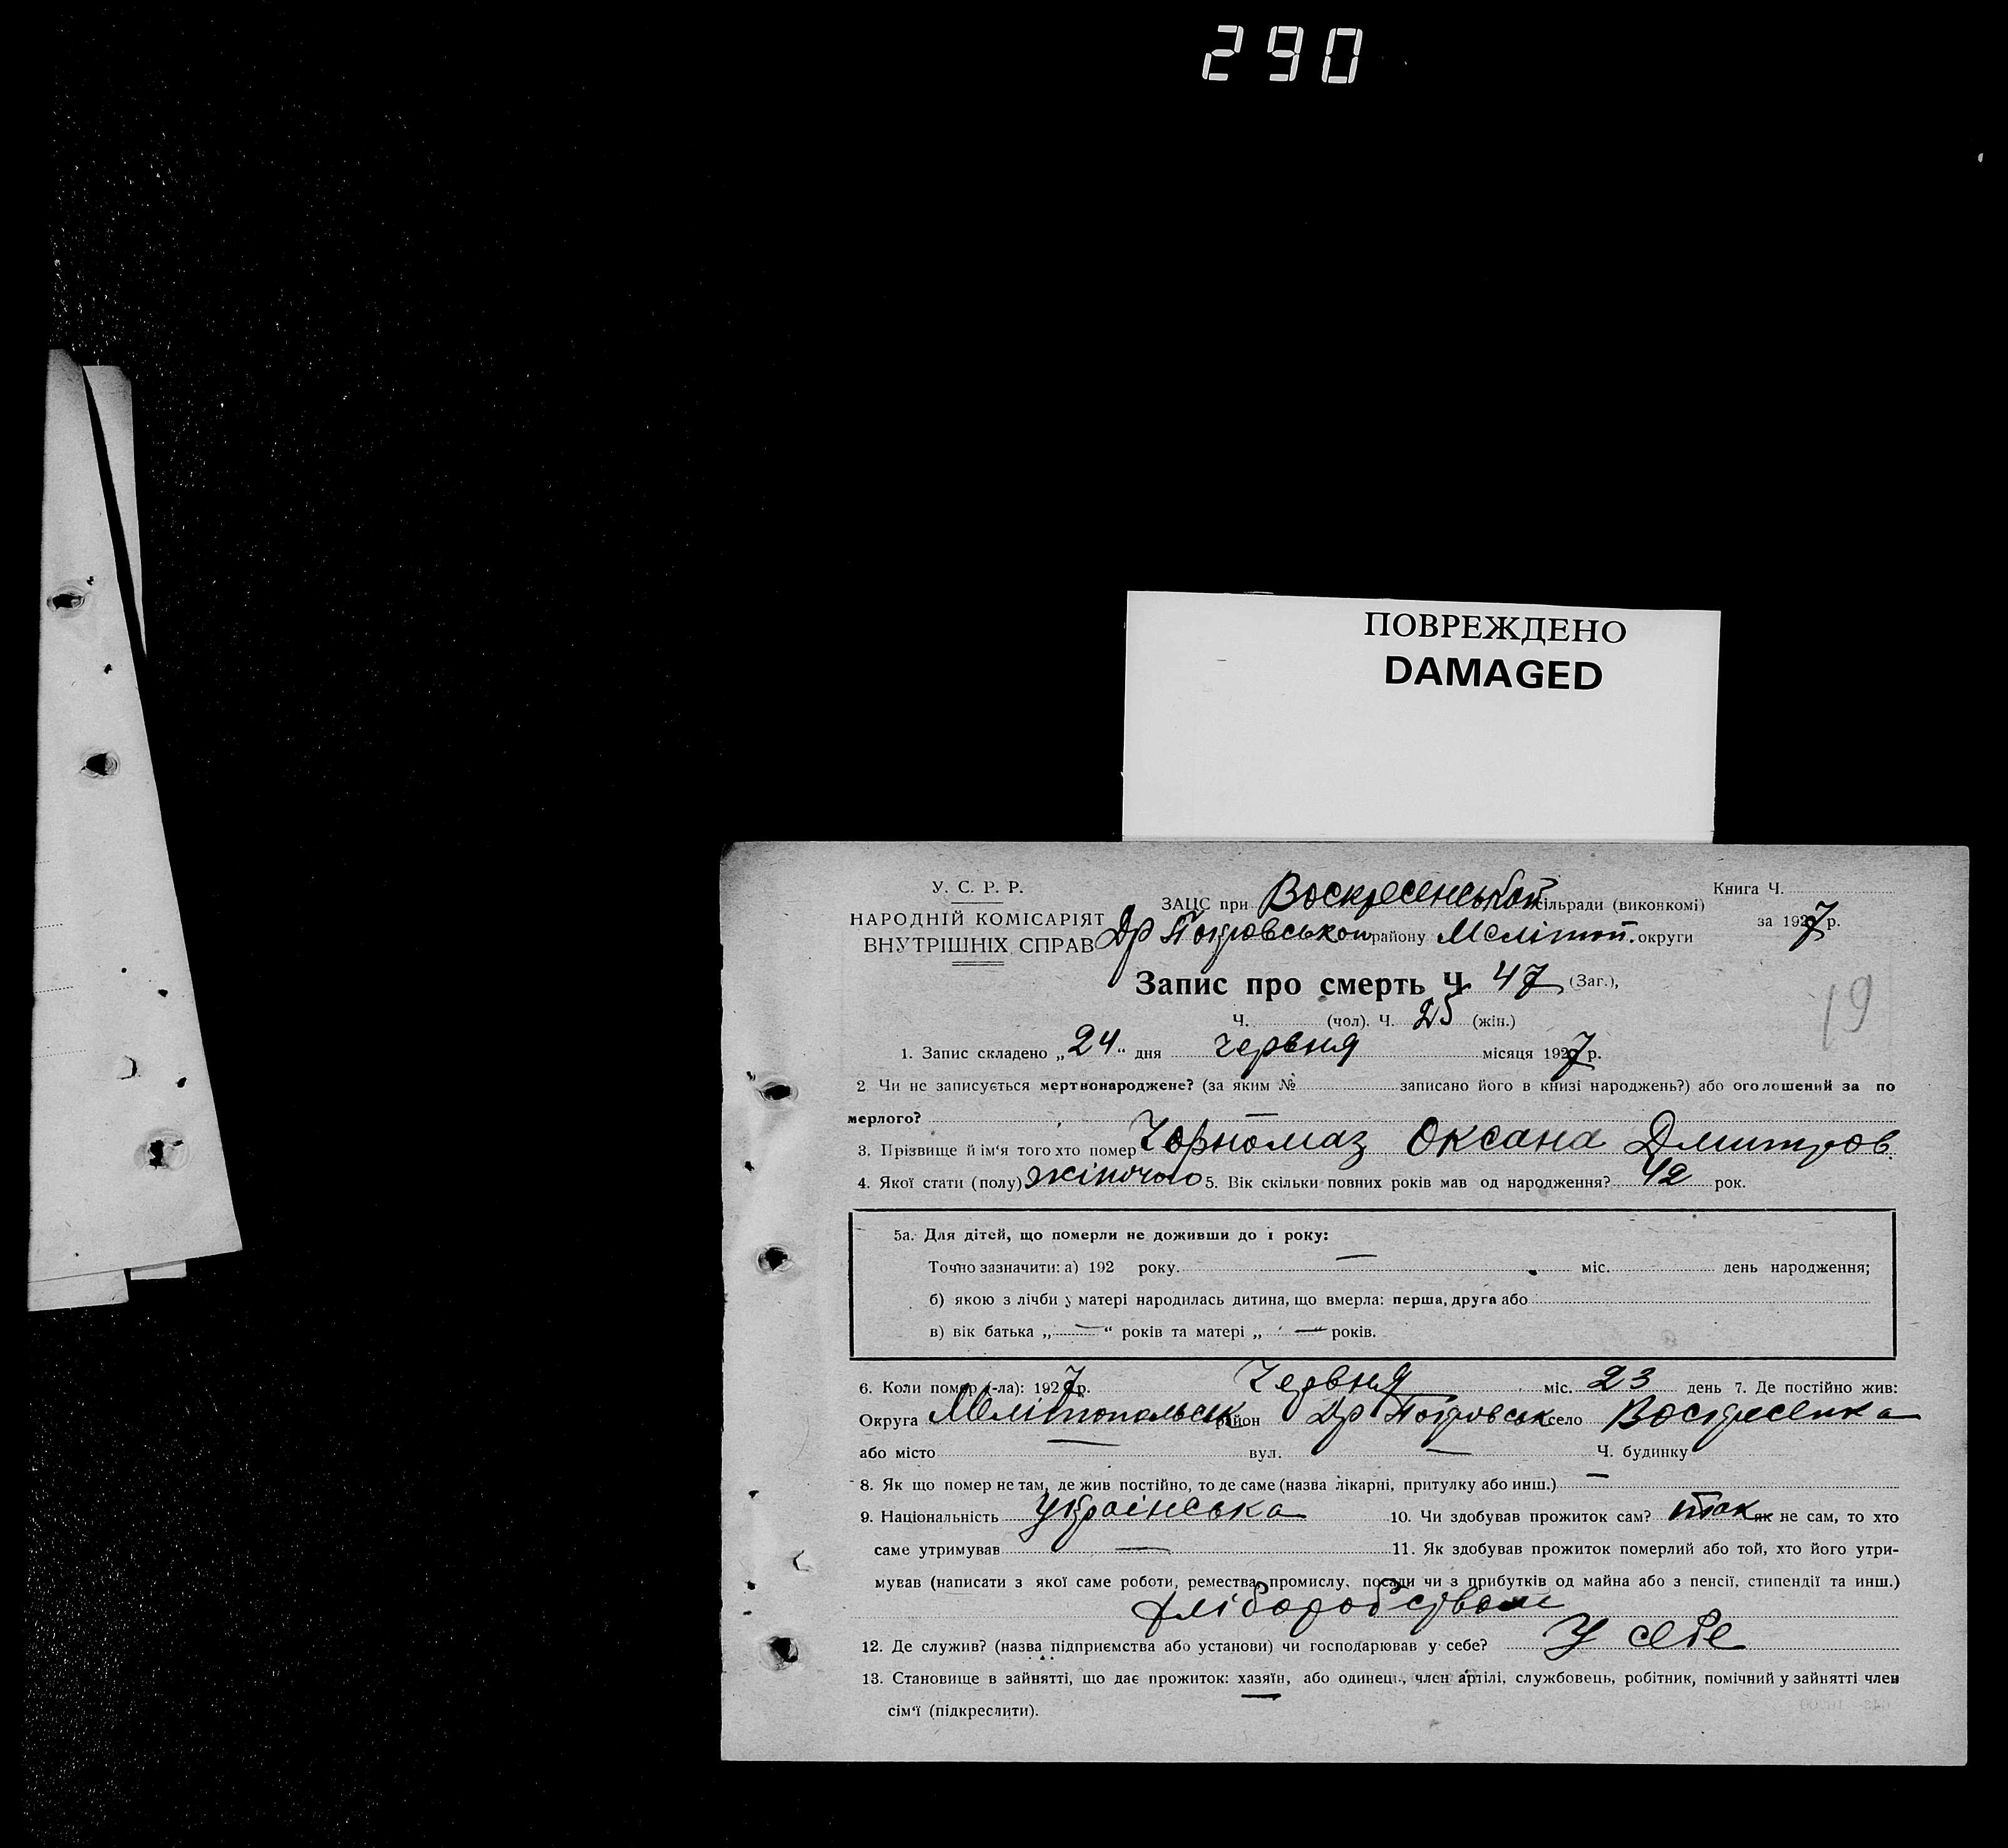 290
ПОВРЕЖДЕНО
DAMAGED
У. С. Р. Р.
НАРОДНІЙ КОМІСАРІЯТ
ВНУТРІШНІХ СПРАВ
ЗАЦС при Воскресенськой сільради (виконкомі)
Др Покровськой району Меліноп. округи
Книга Ч.
за 1927 р.
Запис про смерть Ч. 47 (Заг.),
Ч. (чол). Ч. 25 (жін.)
19
1. Запис складено „24“ дня червня місяця 1927 р.
2 Чи не записується мертвонароджене? (за яким № записано його в книзі народжень?) або оголошений за по
мерлого? —
3. Прізвище й ім‘я того хто помер Чорномаз Оксана Дмитров.
4. Якої стати (полу) жіночого 5. Вік скільки повних років мав од народження? 42 рок.
5а. Для дітей, що померли не доживши до 1 року:
Точно зазначити: а) 192 року. — міс. день народження;
б) якою з лічби у матері народилась дитина, що вмерла: перша, друга або
в) вік батька „ — “ років та матері „ — “ років.
6. Коли помер (-ла): 1927 р. Червня міс. 23 день 7. Де постійно жив:
Округа Мелітопольськ район Др Покровськ село Воскресенка
або місто — вул. — Ч. будинку
8. Як що помер не там, де жив постійно, то де саме (назва лікарні, притулку або инш.) —
9. Національність українська 10. Чи здобував прожиток сам? так як не сам, то хто
саме утримував — 11. Як здобував прожиток померлий або той, хто його утри-
мував (написати з якої саме роботи, ремества, промислу, посади чи з прибутків од майна або з пенсії, стипендії та инш.)
хліборобством
12. Де служив? (назва підприємства або установи) чи господарював у себе? У себе
13. Становище в зайнятті, що дає прожиток: хазяїн, або одинець, член артілі, службовець, робітник, помічний у зайнятті член
сім‘ї (підкреслити).